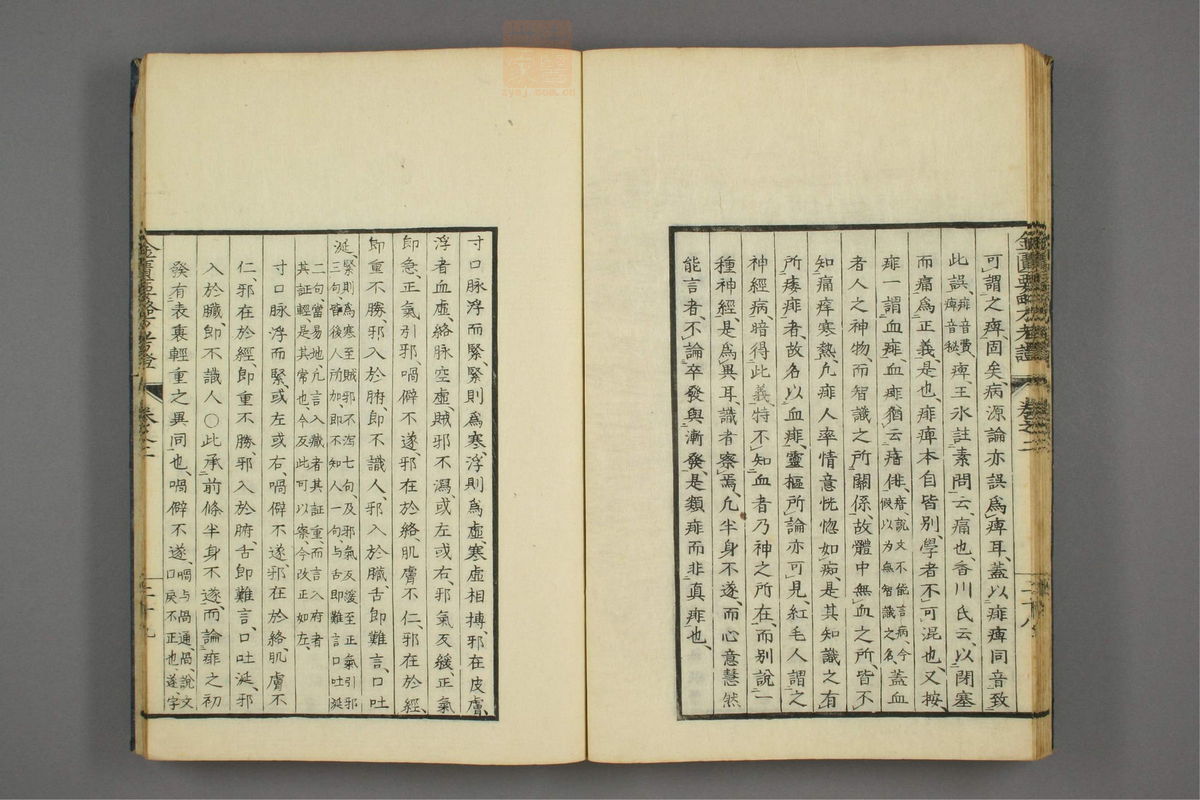 可謂之痺固矣、病源論亦誤爲痺耳、蓋以痱痺同音致
此誤、痱音費、痺音秘、痺、王氷註素問云、痛也香川氏云、以閉塞
而痛爲正義是也、痱痺本自皆別、學者不可混也、又按、
痱一謂血痱、血痱猶云瘖俳、瘖説文不能言病今假以为無智識之名、蓋血
者人之神物、而智識之所關係故體中無血之所、皆不
知痛痒寒熱、凢痱人率情意恍惚如痴、是其知識之有
所痿痱者、故名以血痱、靈樞所論亦可見、紅毛人謂之
神經病暗得此義、特不知血者乃神之所在、而別說一
種神經、是爲異耳、識者察焉、凢半身不遂、而心意慧然
能言者、不論卒發與漸發、是類痱而非真痱也、
寸口脉浮而緊、緊則爲寒、浮則爲虛、寒虛相搏、邪在皮膚、
浮者血虛、絡脉空虛、賊邪不瀉、或左或右、邪氣反緩、正氣
即急、正氣引邪、喎僻不遂、邪在於絡、肌膚不仁、邪在於經、
即重不勝、邪入於腑、即不識人、邪入於臓、舌即難言、口吐
涎、緊則爲寒至賊邪不瀉七句、及邪氣反緩至正氣引邪
三句、皆後人所加即不知人一句、与舌即難言口吐涎
二句當易地凢言入藏者其証重而言入府者
其証輕是其常也今反此可以察、今改正如左、
寸口脉浮而緊、或左或右、喎僻不遂、邪在於絡、肌膚不
仁、邪在於經、即重不勝、邪入於腑、舌即難言、口吐涎、邪
入於臓、即不識人○此承前條半身不遂、而論痱之初
發有表裏輕重之異同也、喎僻不遂、喎与咼通、咼、說文口戾不正也、遂字
金匱要略
卷之二
二十八
金匱要略
卷之二
二十九
zysj.com.cn